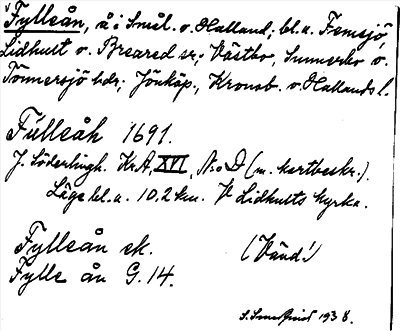 Fylleån, å i Smål. o. Halland; bl.a. Femsjö,
Lidhult o. Breared sr; Västbo, Sunnerbo o.
Tönnersjö hdr; Jönköp., Kronob. o. Hallands l.
Fülleåh 1691.
J. Söderlingh. Kr.A, XVI, N:o D (m. kartbeskr.).
Läge bl.a. 10,2 km. V Lidhults kyrka.
Fylleån ek. (Vänd!)
Fylle ån G. 14.
1938.